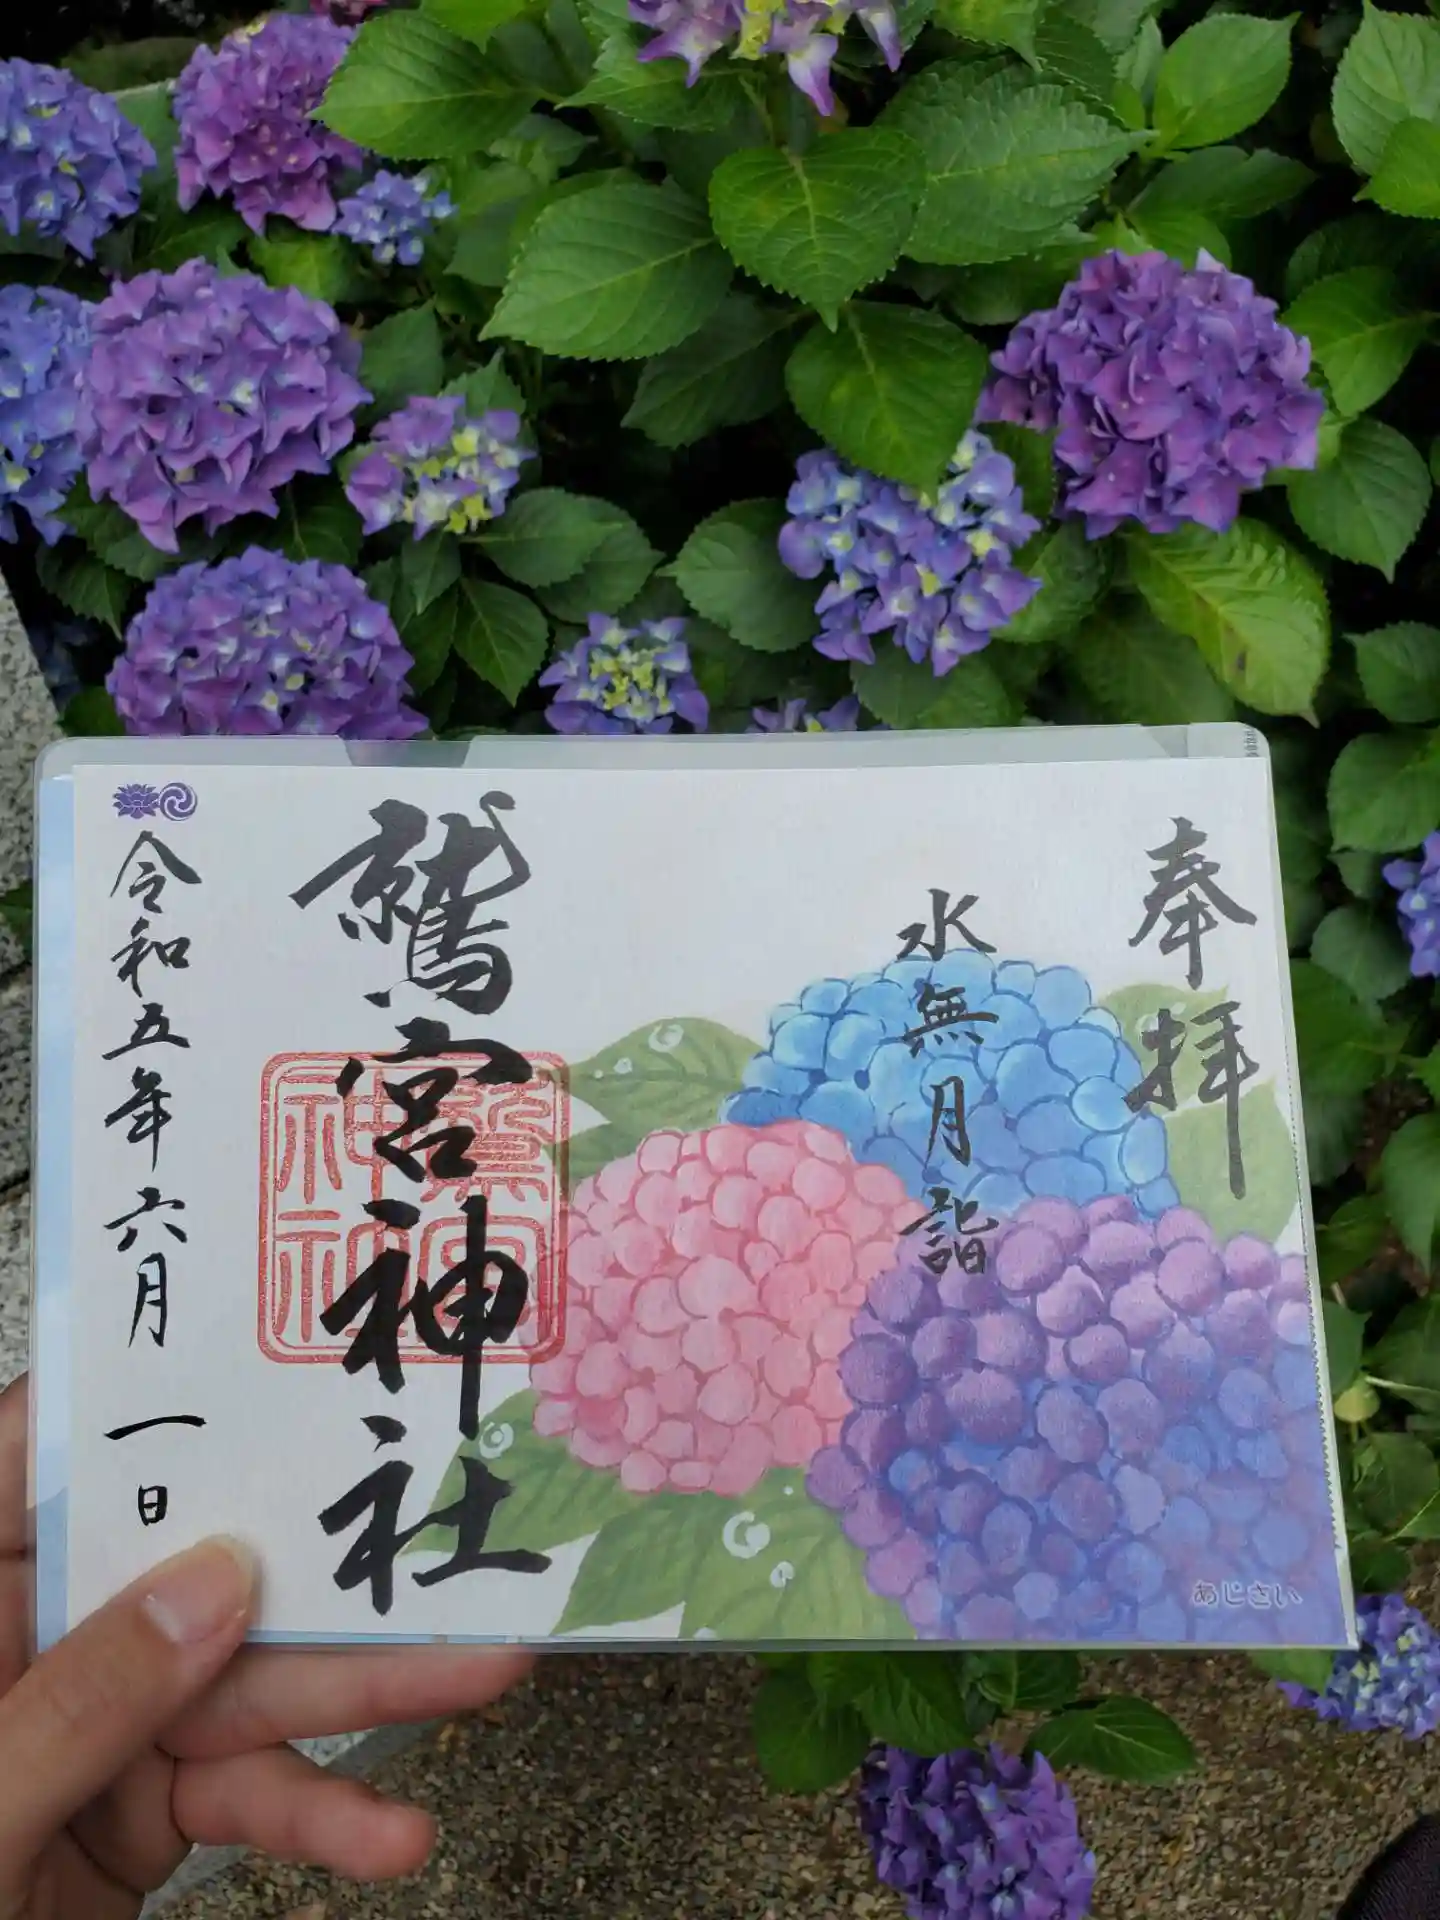 奉拝
水無月詣
鷲宮神社
鷲宮
神社
令和五年六月一日
あじさい